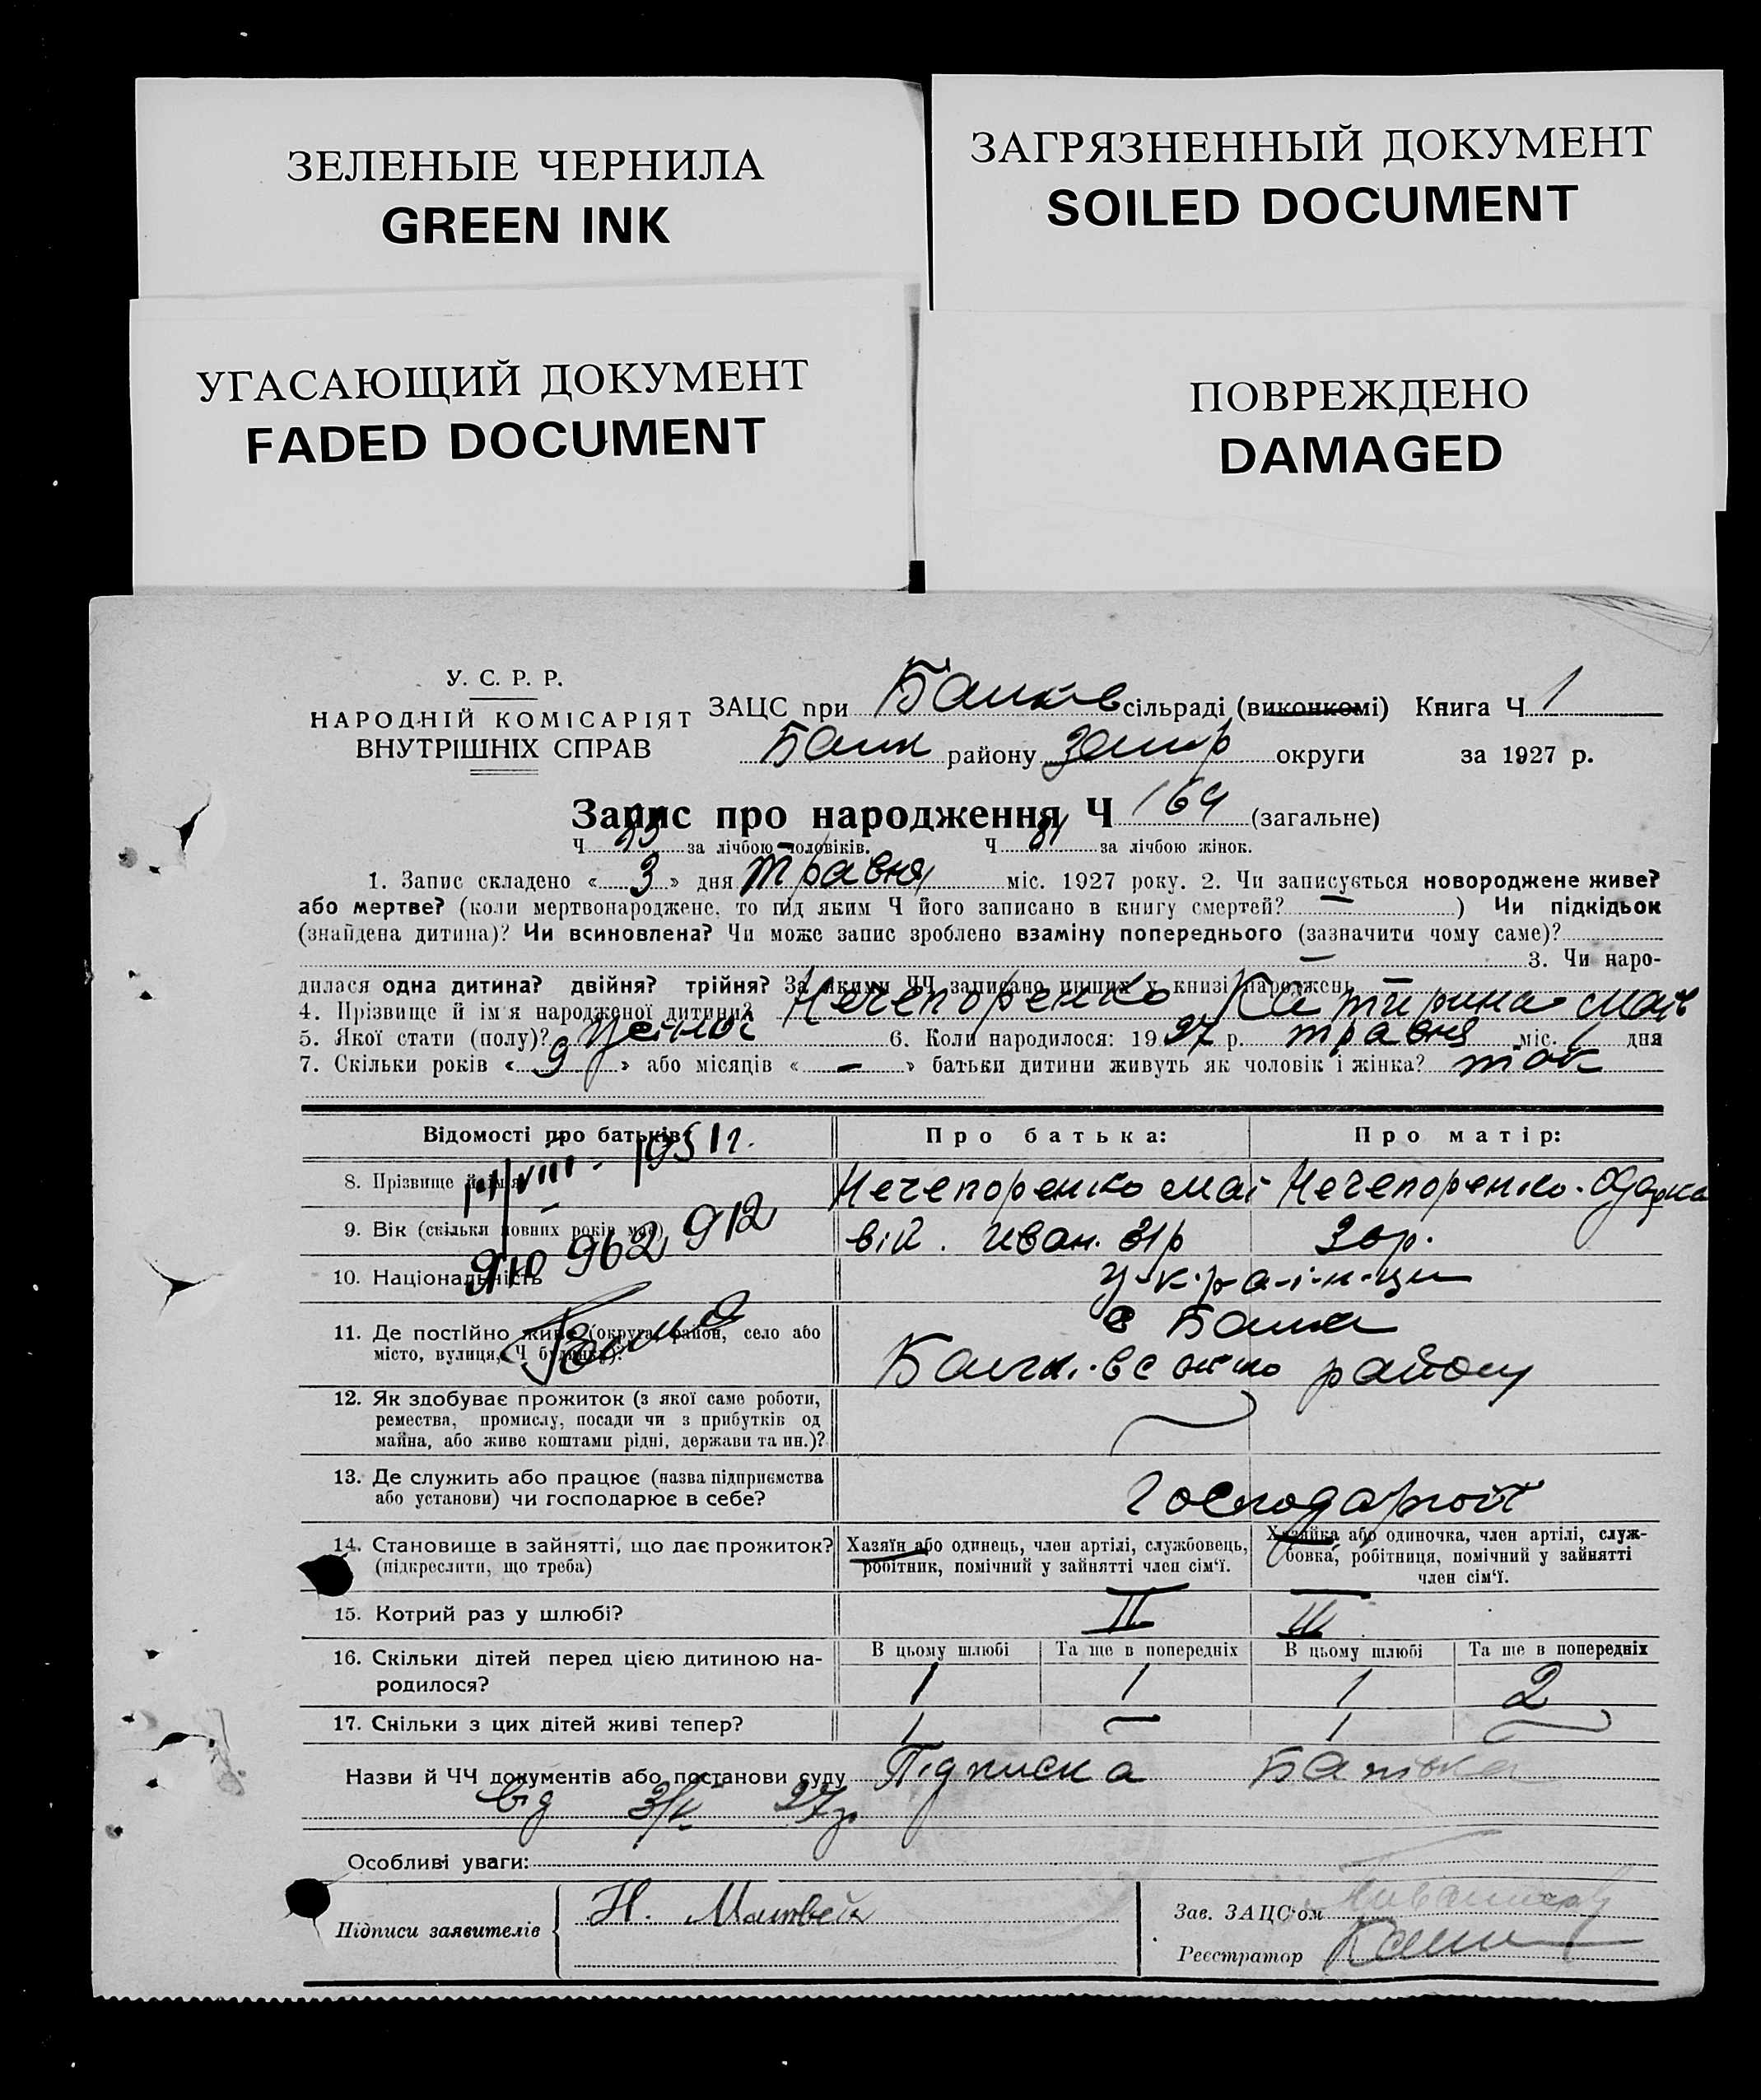 ЗЕЛЕНЫЕ ЧЕРНИЛА
GREEN INK
ЗАГРЯЗНЕННЫЙ ДОКУМЕНТ
SOILED DOCUMENT
УГАСАЮЩИЙ ДОКУМЕНТ
FADED DOCUMENT
ПОВРЕЖДЕНО
DAMAGED
У. С. Р. Р.
НАРОДНІЙ КОМІСАРІЯТ
ВНУТРІШНІХ СПРАВ
ЗАЦС при сільраді (виконкомі) Книга Ч 1
району округи за 1927 р.
Запис про народження Ч 164 (загальне)
Ч за лічбою чоловіків. Ч 81 за лічбою жінок.
1. Запис складено « 3 » дня травня міс. 1927 року. 2. Чи записується новороджене живе?
або мертве? (коли мертвонароджене, то під яким Ч його записано в книгу смертей? — ) Чи підкідьок
(знайдена дитина)? Чи всиновлена? Чи може запис зроблено взаміну попереднього (зазначити чому саме)?
— 3. Чи наро-
дилася одна дитина? двійня? трійня? За якими ЧЧ записано інших у книзі народжень —
4. Прізвище й ім'я народженої дитини? Нечепоренко Катирина
5. Якої стати (полу)? 6. Коли народилося: 1927 р. травня міс. 1 дня
7. Скільки років « 9 » або місяців « — » батьки дитини живуть як чоловік і жінка? так
Відомості про батьків: Про батька: Про матір:
VIII - 1951 г.
8. Прізвище й ім'я Нечепоренко Мат Нечепоренко Одарка
9. Вік (скільки повних років має) вій. Иван. 31р 30р.
962912
10. Національність українци
11. Де постійно живе (округа, район, село або
місто, вулиця, Ч будинку)?
с Балка
району
12. Як здобуває прожиток (з якої саме роботи,
ремества, промислу, посади чи з прибутків од
майна, або живе коштами рідні, держави та ин.)?
13. Де служить або працює (назва підприємства
або установи) чи господарює в себе?
14. Становище в зайнятті, що дає прожиток?
(підкреслити, що треба)
Хазяїн або одинець, член артілі, службовець,
робітник, помічний у зайнятті член сім'ї.
Хазяйка або одиночка, член артілі, служ-
бовка, робітниця, помічний у зайнятті
член сім'ї.
15. Котрий раз у шлюбі? II III
16. Скільки дітей перед цією дитиною на-
родилося?
В цьому шлюбі Та ще в попередніх В цьому шлюбі Та ще в попередніх
1 1 1 2
17. Скільки з цих дітей живі тепер? 1 — 1 —
Назви й ЧЧ документів або постанови суду Підписка Батька
від 3/V 27р
Особливі уваги:
Підписи заявителів Н. Матвей
Зав. ЗАЦС'ом
Реєстратор